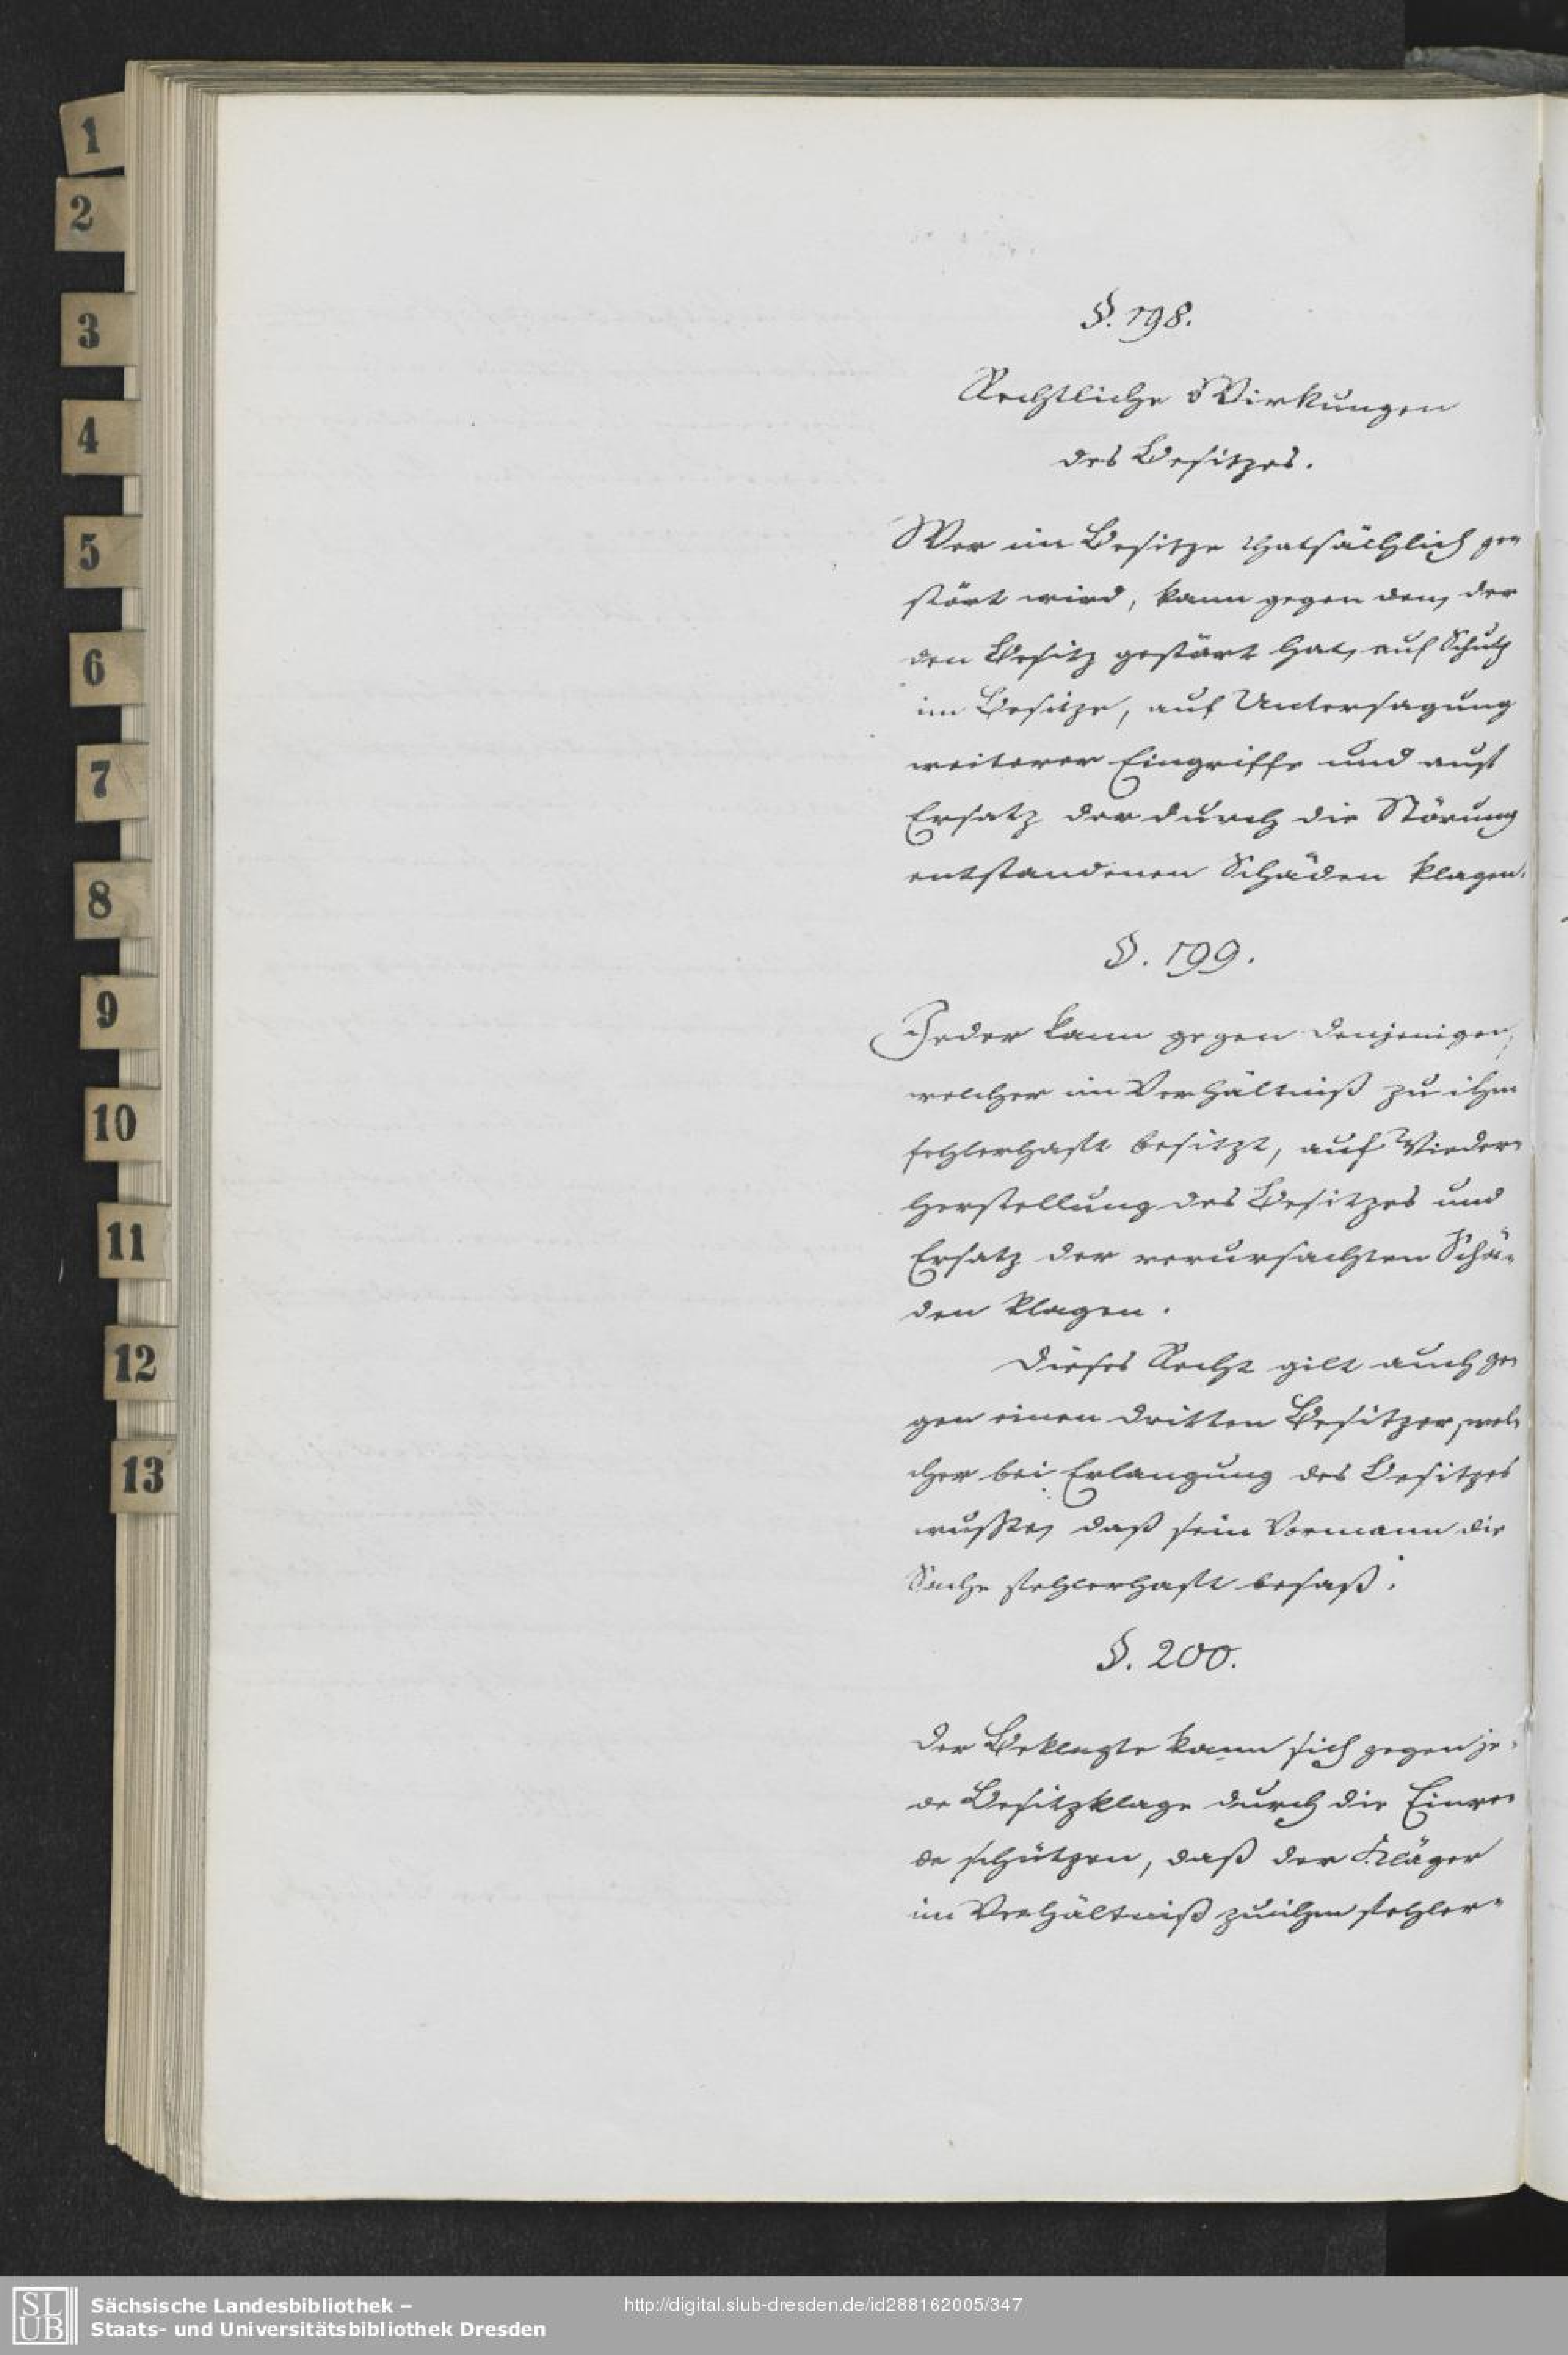 1
2
3
4
5
6
7
8
9
10
11
12
13
§. 198.
Rechtliche Wirkungen
des Besitzes.
Wer im Besitze thatsächlich ge-
stört wird, kann gegen den, der
den Besitz gestört hat, auf Schutz
im Besitze, auf Untersagung
weiterer Eingriffe und auf
Ersatz der durch die Störung
entstandenen Schäden klagen.
§. 199.
Jeder kann gegen denjenigen,
welcher im Verhältniß zu ihm
fehlerhaft besitzt, auf Wieder-
herstellung des Besitzes und
Ersatz der verursachten Schä-
den klagen.
Dieses Recht gilt auch ge-
gen einen dritten Besitzer, wel-
cher bei Erlangung des Besitzes
wußte, daß sein Vormann die
Sache fehlerhaft besaß.
§. 200.
Der Beklagte kann sich gegen je-
de Besitzklage durch die Einre-
de schützen, daß der Kläger
im Verhältniß zu ihm fehler-
SLUB
Sächsische Landesbibliothek –
Staats- und Universitätsbibliothek Dresden
http://digital.slub-dresden.de/id288162005/347